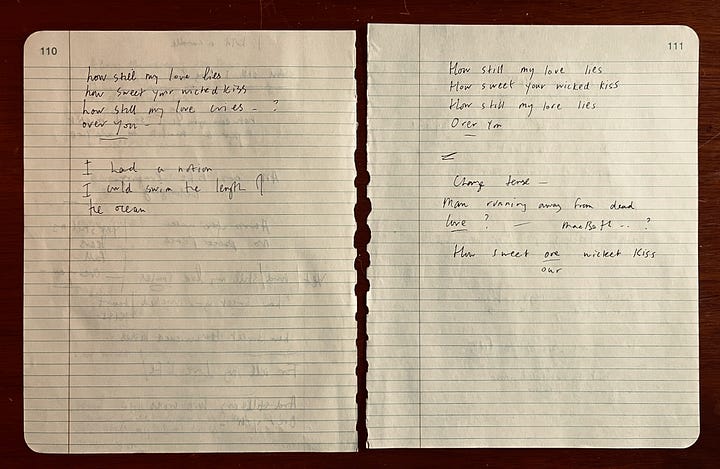 110
how still my love lies
how sweet your wicked kiss
how still my love cries - ?
over you -
I had a notion
I could swim the length of
the ocean
111
How still my love lies
How sweet your wicked kiss
How still my love lies
Over You
Change tense -
Man running away from dead
love ? - MacBeth .. ?
How sweet are wicket kiss
our